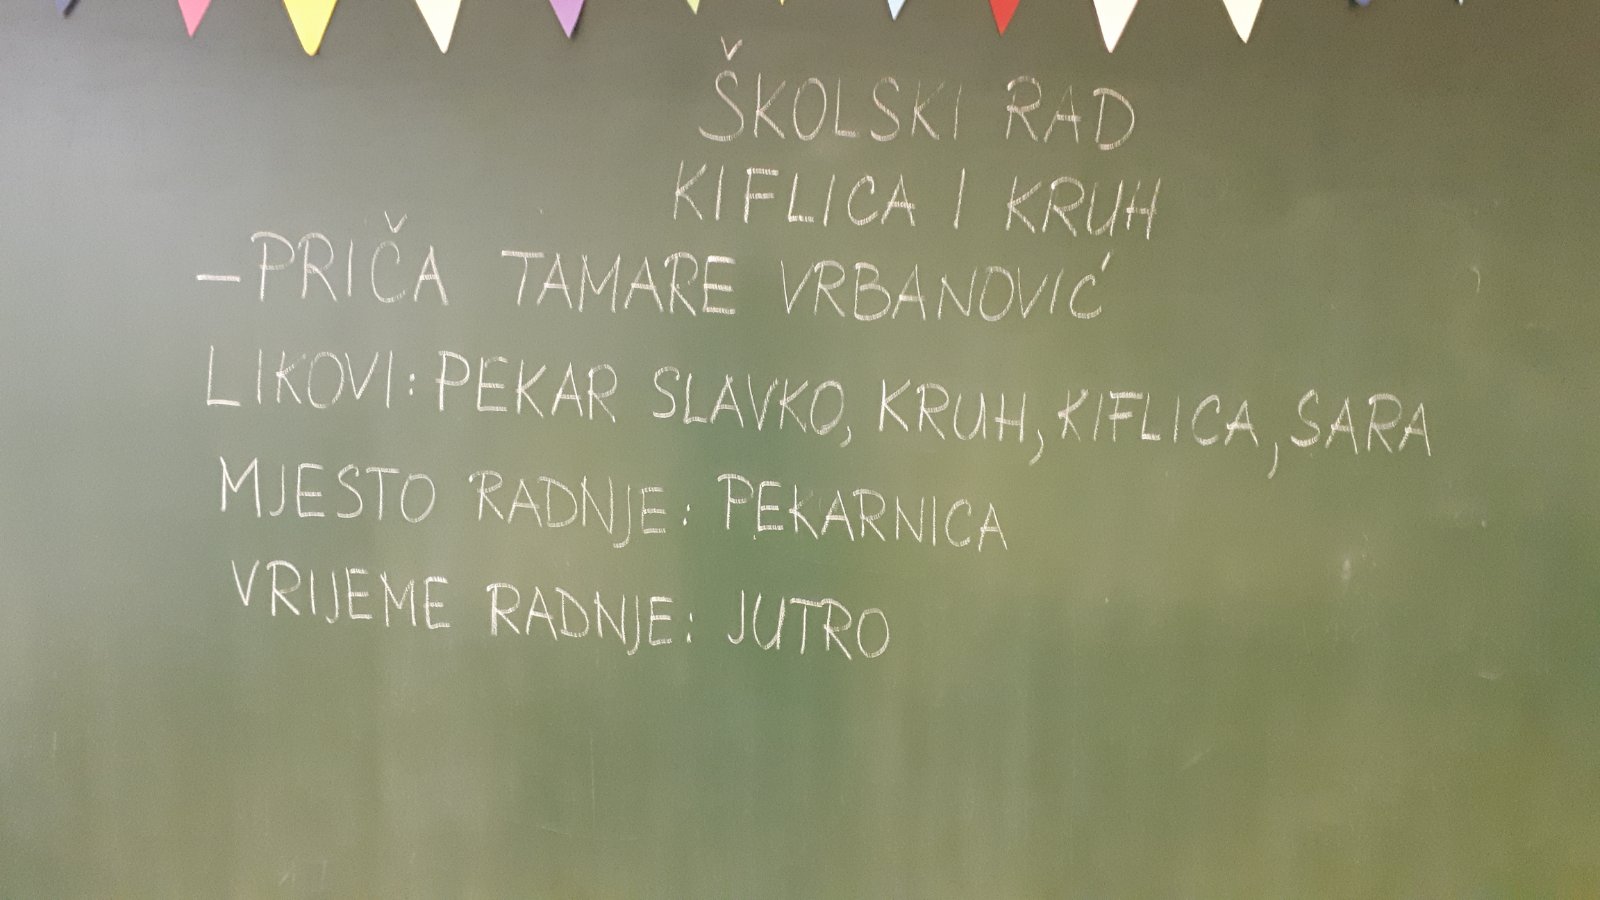 ŠKOLSKI RAD
KIFLICA I KRUH
- PRIČA TAMARE VRBANOVIĆ
LIKOVI: PEKAR SLAVKO, KRUH, KIFLICA, SARA
MJESTO RADNJE: PEKARNICA
VRIJEME RADNJE: JUTRO